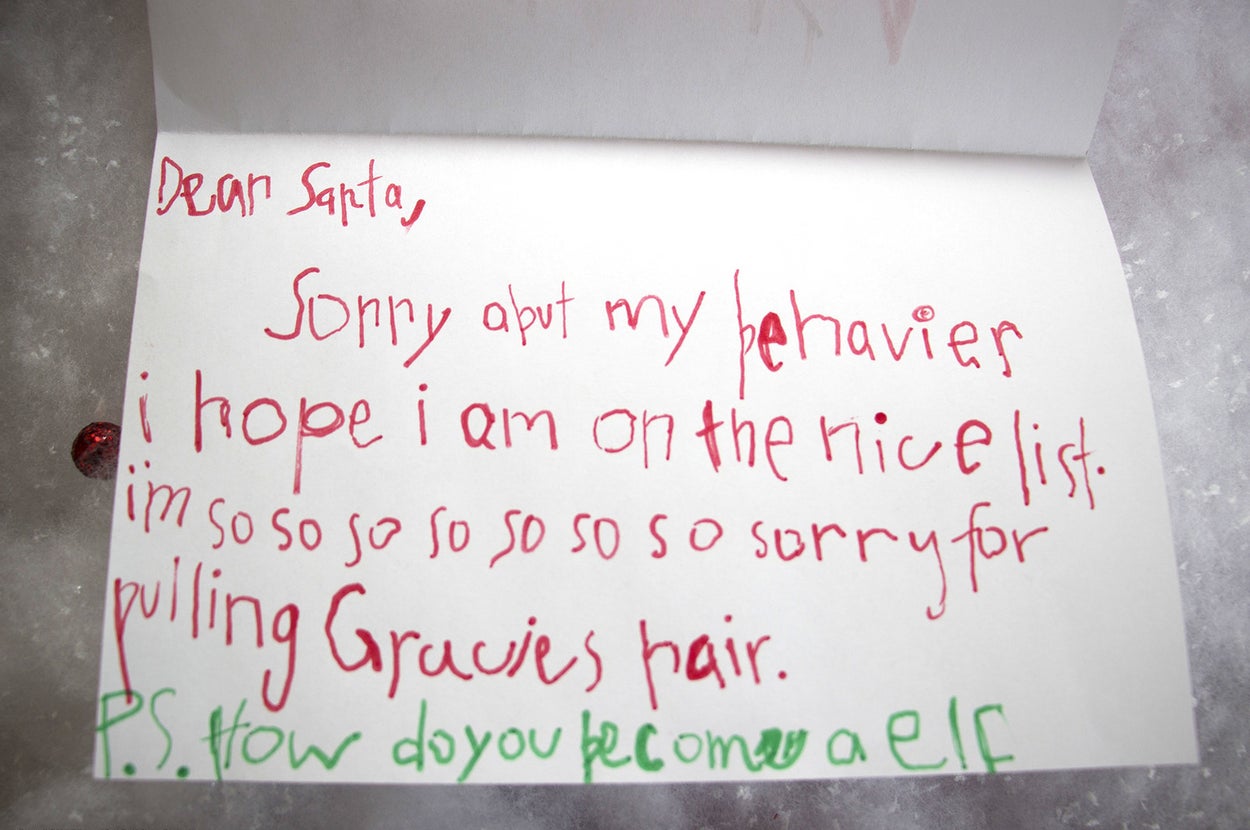 Dear Santa,
Sorry abut my behavier
i hope i am on the nice list.
i'm so so so so so so so sorry for
pulling Gracies hair.
P.S. How do you become a elf